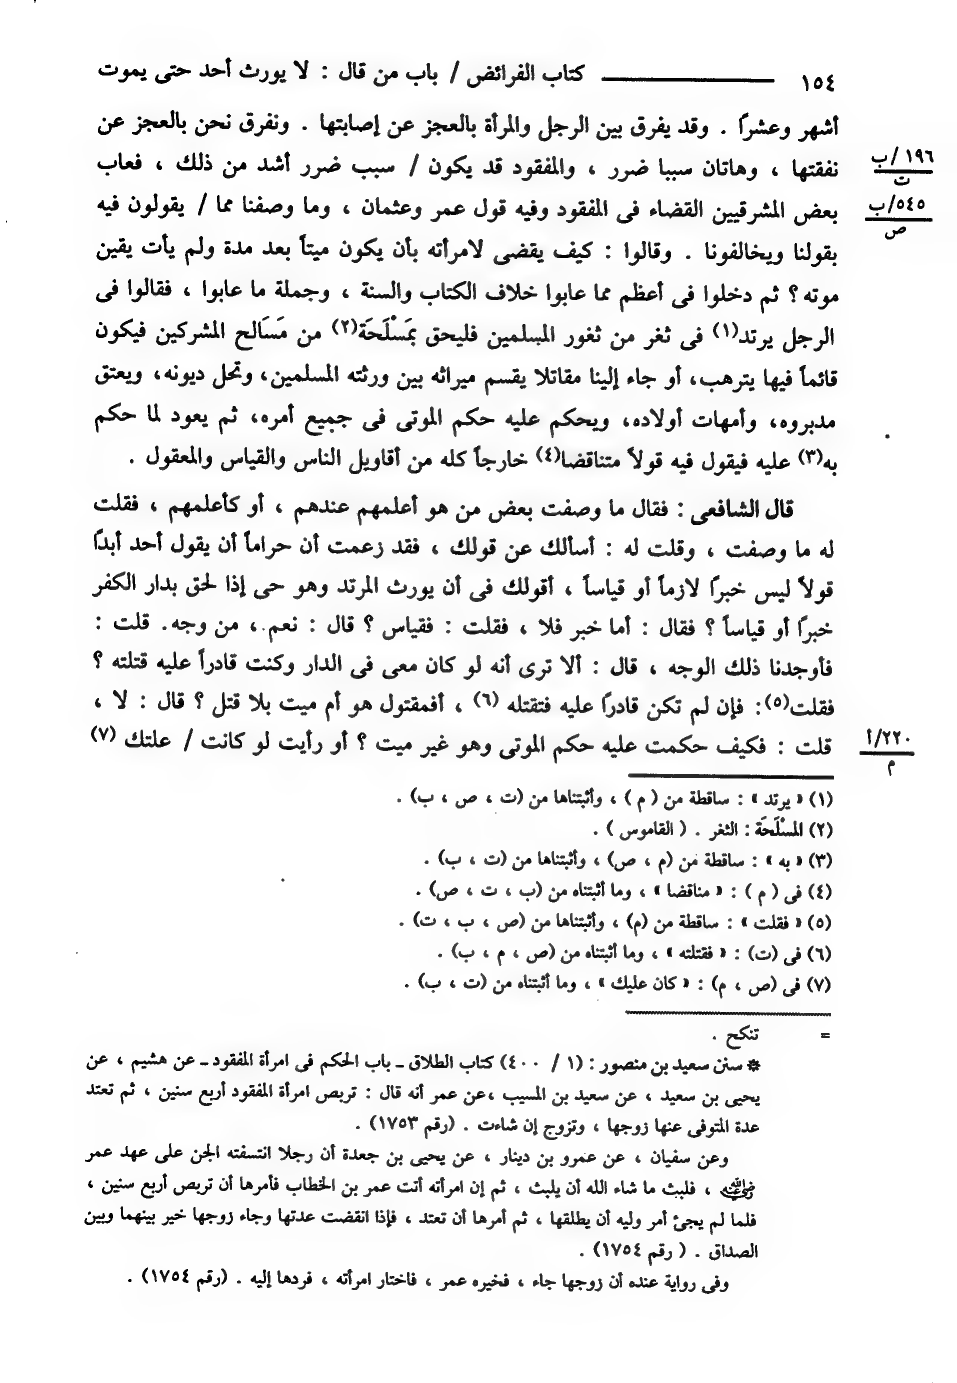 ١٥٤ ــــــــــــ كتاب الفرائض / باب من قال : لا يورث أحد حتى يموت
أشهر وعشرًا . وقد يفرق بين الرجل والمرأة بالعجز عن إصابتها . ونفرق نحن بالعجز عن
نفقتها ، وهاتان سببا ضرر ، والمفقود قد يكون / سبب ضرر أشد من ذلك ، فعاب
١٩٦/ب
ت
بعض المشرقيين القضاء فى المفقود وفيه قول عمر وعثمان ، وما وصفنا مما / يقولون فيه
٥٤٥/ب
ص
بقولنا ويخالفونا . وقالوا : كيف يقضى لامرأته بأن يكون ميتاً بعد مدة ولم يأت يقين
موته ؟ ثم دخلوا فى أعظم مما عابوا خلاف الكتاب والسنة ، وجملة ما عابوا ، فقالوا فى
الرجل يرتد(١) فى ثغر من ثغور المسلمين فليحق بمَسْلَحَة(٢) من مَسَالح المشركين فيكون
قائماً فيها يترهب، أو جاء إلينا مقاتلا يقسم ميراثه بين ورثته المسلمين، وتحل ديونه، ويعتق
مدبروه، وأمهات أولاده، ويحكم عليه حكم الموتى فى جميع أمره، ثم يعود لما حكم
به(٣) عليه فيقول فيه قولاً متناقضا(٤) خارجاً كله من أقاويل الناس والقياس والمعقول .
قال الشافعى : فقال ما وصفت بعض من هو أعلمهم عندهم ، أو كأعلمهم ، فقلت
له ما وصفت ، وقلت له : أسألك عن قولك ، فقد زعمت أن حراماً أن يقول أحد أبدًا
قولاً ليس خبرًا لازماً أو قياساً ، أقولك فى أن يورث المرتد وهو حى إذا لحق بدار الكفر
خبرًا أو قياساً ؟ فقال : أما خبر فلا ، فقلت : فقياس ؟ قال : نعم ، من وجه. قلت :
فأوجدنا ذلك الوجه ، قال : ألا ترى أنه لو كان معى فى الدار وكنت قادراً عليه قتلته ؟
فقلت(٥): فإن لم تكن قادرًا عليه فتقتله (٦) ، أفمقتول هو أم ميت بلا قتل ؟ قال : لا ،
قلت : فكيف حكمت عليه حكم الموتى وهو غير ميت ؟ أو رأيت لو كانت / علتك (٧)
٢٢٠/أ
م
(١) « يرتد » : ساقطة من ( م ) ، وأثبتناها من (ت ، ص ، ب) .
(٢) المسْلَحَة : الثغر . ( القاموس ) .
(٣) « به » : ساقطة من (م ، ص) ، وأثبتناها من (ت ، ب) .
(٤) فى ( م ) : « مناقضا » ، وما أثبتناه من (ب ، ت ، ص) .
(٥) « فقلت » : ساقطة من (م) ، وأثبتناها من (ص ، ب ، ت) .
(٦) فى (ت) : « فقتلته » ، وما أثبتناه من (ص ، م ، ب) .
(٧) فى (ص ، م) : « كان عليك » ، وما أثبتناه من (ت ، ب) .
= تنكح .
❋ سنن سعيد بن منصور : (١ / ٤٠٠) كتاب الطلاق ـ باب الحكم فى امرأة المفقود ـ عن هشيم ، عن
يحيى بن سعيد ، عن سعيد بن المسيب ،عن عمر أنه قال : تربص امرأة المفقود أربع سنين ، ثم تعتد
عدة المتوفى عنها زوجها ، وتزوج إن شاءت . (رقم ١٧٥٣) .
وعن سفيان ، عن عمرو بن دينار ، عن يحيى بن جعدة أن رجلا انتسفته الجن على عهد عمر
رضي الله عنه ، فلبث ما شاء الله أن يلبث ، ثم إن امرأته أتت عمر بن الخطاب فأمرها أن تربص أربع سنين ،
فلما لم يجئ أمر وليه أن يطلقها ، ثم أمرها أن تعتد ، فإذا انقضت عدتها وجاء زوجها خير بينهما وبين
الصداق . ( رقم ١٧٥٤) .
وفى رواية عنده أن زوجها جاء ، فخيره عمر ، فاختار امرأته ، فردها إليه . (رقم ١٧٥٤) .